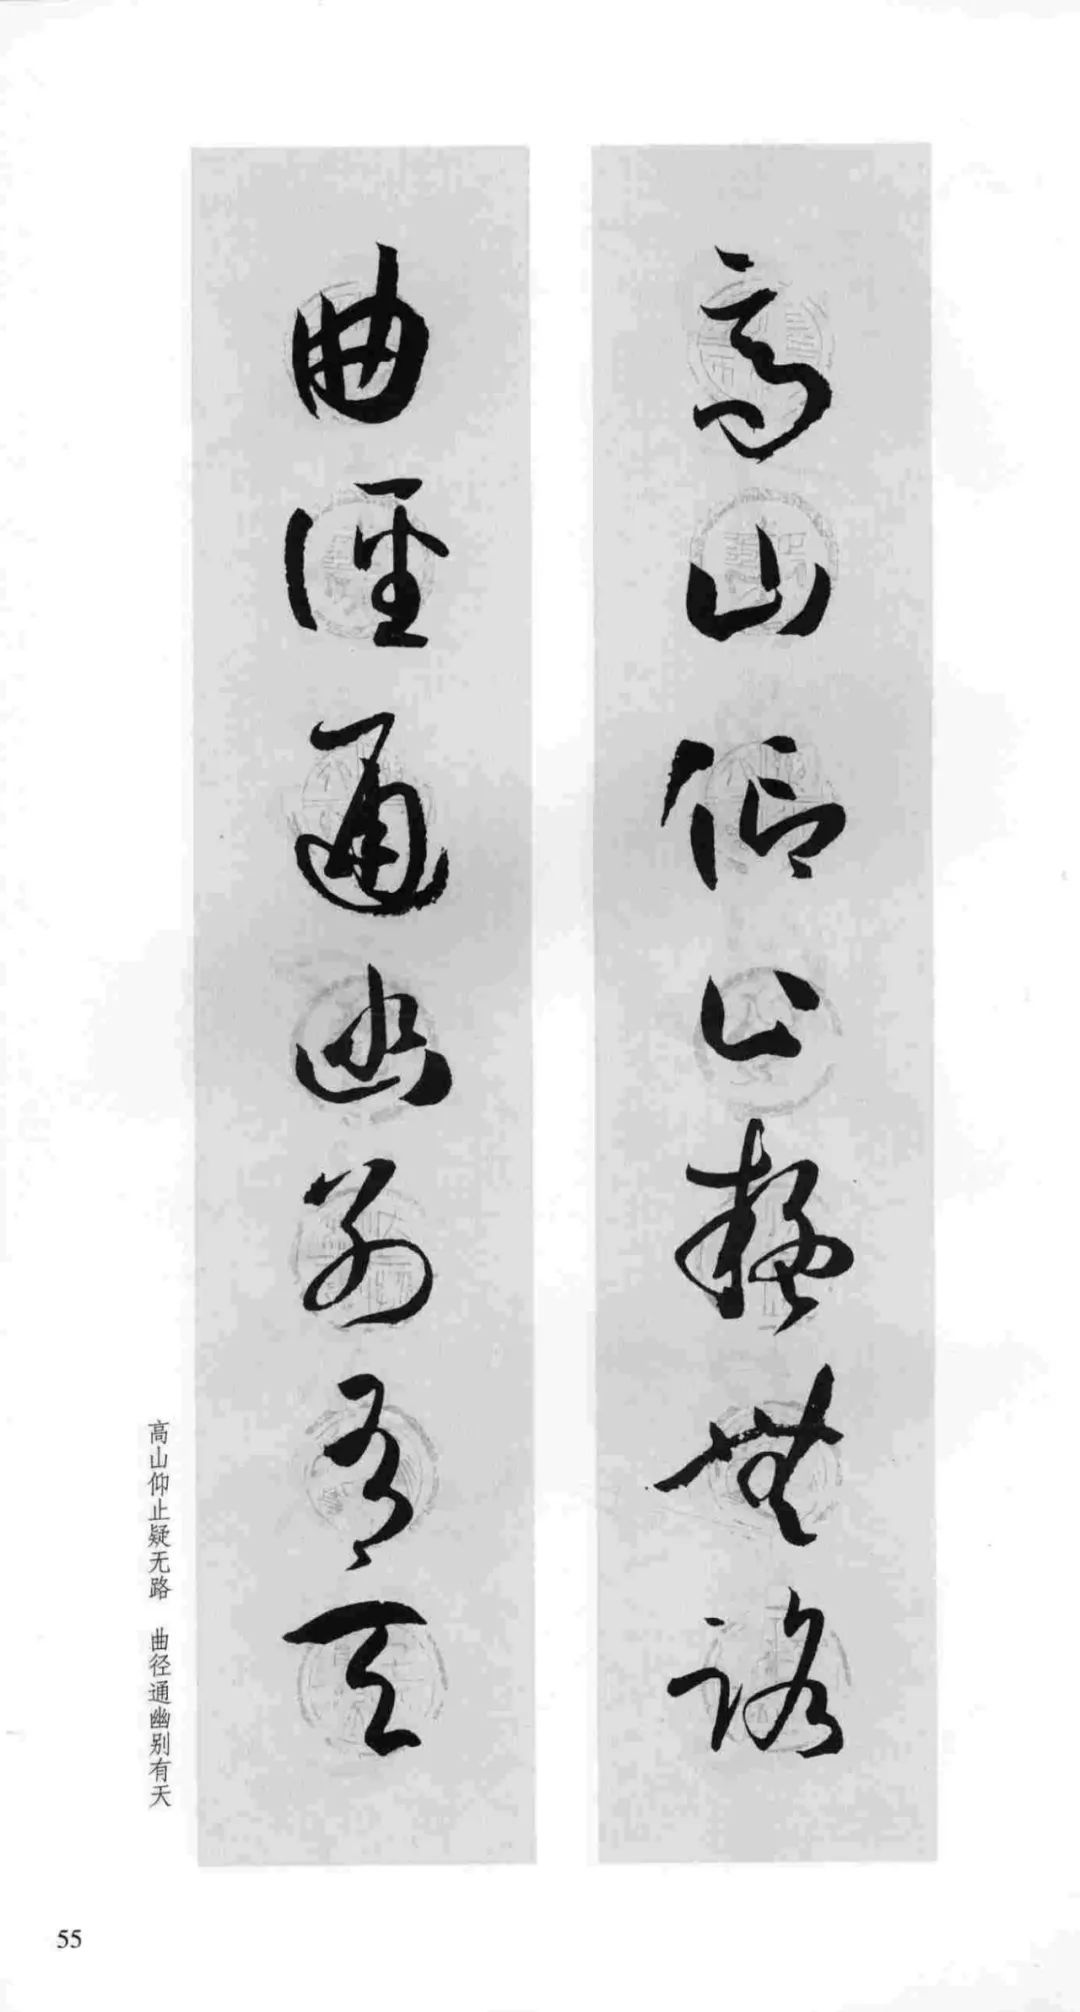 高山仰止疑無路
曲徑通幽別有天
高山仰止疑无路 曲径通幽别有天
55